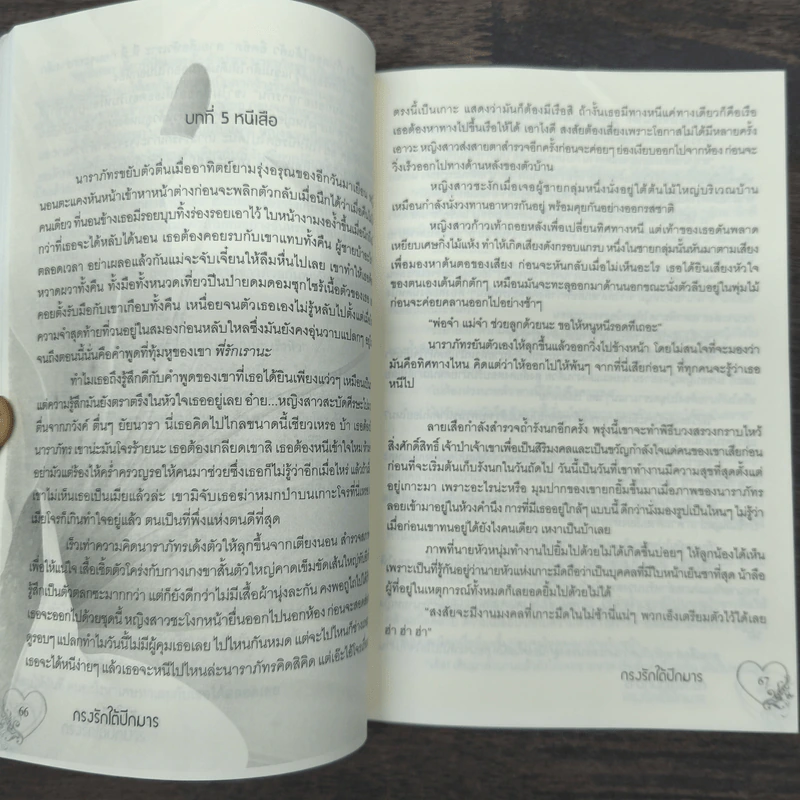 บทที่ 5 หนีเสือ
นาราภัทรขยับตัวตื่นเมื่ออาทิตย์ยามรุ่งอรุณของอีกวันมาเยือน
นอนตะแคงหันหน้าเข้าหาหน้าต่างก่อนจะพลิกตัวกลับเมื่อนึกได้ว่า
คนเดียว ที่นอนข้างเธอมีรอยบุบทิ้งร่องรอยเอาไว้ ใบหน้างามงอง้ำขึ้นเมื่อ
กว่าที่เธอจะได้หลับได้นอน เธอต้องคอยรบกับเขาแทบทั้งคืน
ตลอดเวลา อย่าเผลอแล้วกันแม่จะจับเจี๋ยนให้ลืมหื่นไปเลย เขาทำให้
หวาดผวาทั้งคืน ทั้งมือทั้งหนวดเที่ยวป่ายดมดอมซุกไซร้เนื้อตัวของเธอ
คอยตั้งรับมือกับเขาเกือบทั้งคืน เหนื่อยจนตัวเธอเองไม่รู้หลับไปตั้งแต่
ความจำสุดท้ายที่วนอยู่ในสมองก่อนหลับใหลซึ่งมันยังคงอุ่นวาบแปลกๆ
จนถึงตอนนี้นั่นคือคำพูดที่ทุ้มหูของเขา พี่รักเรานะ
ทำไมเธอถึงรู้สึกดีกับคำพูดของเขาที่เธอได้ยินเพียงแว่วๆ
แต่ความรู้สึกมันยังตราตรึงในหัวใจเธออยู่เลย อ๋าย...หญิงสาวสะบัดศีรษะ
ตื่นจากภวังค์ ตื่นๆ ยัยนารา นี่เธอคิดไปไกลขนาดนี้เชียวเหรอ บ้า
นาราภัทร เขาน่ะมันโจรร้ายนะ เธอต้องเกลียดเขาสิ เธอต้องหนีเข้าใจไหม
อย่ามัวแต่ร้องไห้คร่ำครวญรอให้คนมาช่วยซึ่งเธอก็ไม่รู้ว่าอีกเมื่อไหร่
เขาไม่เห็นเธอเป็นเมียแล้วล่ะ เขามิจับเธอฆ่าหมกป่าบนเกาะโจรที่นี่
เมียโจรก็เกินทำใจอยู่แล้ว ตนเป็นที่พึ่งแห่งตนดีที่สุด
เร็วเท่าความคิดนาราภัทรเด้งตัวให้ลุกขึ้นจากเตียงนอน
เพื่อให้แน่ใจ เสื้อเชิ้ตตัวโคร่งกับกางเกงขาสั้นตัวใหญ่คาดเข็มขัดเส้นใหญ่
รู้สึกเป็นตัวตลกซะมากกว่า แต่ก็ยังดีกว่าไม่มีเสื้อผ้านุ่งละกัน
เธอจะออกไปด้วยชุดนี้ หญิงสาวชะโงกหน้ายื่นออกไปนอกห้อง
ดูรอบๆ แปลกทำไมวันนี้ไม่มีผู้คุมเธอเลย ไปไหนกันหมด
เธอจะได้หนีง่ายๆ แล้วเธอจะหนีไปไหนล่ะนาราภัทรคิดสิคิด
66
กรงรักใต้ปีกมาร
ตรงนี้เป็นเกาะ แสดงว่ามันก็ต้องมีเรือสิ ถ้างั้นเธอมีทางหนีแค่ทางเดียวก็คือเรือ
เธอต้องหาทางไปขึ้นเรือให้ได้ เอาไงดี สงสัยต้องเสี่ยงเพราะโอกาสไม่ได้มีหลายครั้ง
เอาวะ หญิงสาวส่งสายตาสำรวจอีกครั้งก่อนจะค่อยๆ ย่องเงียบออกไปจากห้อง ก่อนจะ
วิ่งเร็วออกไปทางด้านหลังของตัวบ้าน
หญิงสาวชะงักเมื่อเจอผู้ชายกลุ่มหนึ่งนั่งอยู่ใต้ต้นไม้ใหญ่บริเวณบ้าน
เหมือนกำลังนั่งวงทานอาหารกันอยู่ พร้อมคุยกันอย่างออกรสชาติ
หญิงสาวก้าวเท้าถอยหลังเพื่อเปลี่ยนทิศทางหนี แต่เท้าของเธอดันพลาด
เหยียบเศษกิ่งไม้แห้ง ทำให้เกิดเสียงดังกรอบแกรบ หนึ่งในชายกลุ่มนั้นหันมาตามเสียง
เพื่อมองหาต้นตอของเสียง ก่อนจะหันกลับเมื่อไม่เห็นอะไร เธอได้ยินเสียงหัวใจ
ของตนเองเต้นตึกตักๆ เหมือนมันจะทะลุออกมาด้านนอกขณะนั่งตัวลีบอยู่ในพุ่มไม้
ก่อนจะค่อยคลานออกไปอย่างช้าๆ
“พ่อจ๋า แม่จ๋า ช่วยลูกด้วยนะ ขอให้หนูหนีรอดทีเถอะ”
นาราภัทรยันตัวเองให้ลุกขึ้นแล้วออกวิ่งไปข้างหน้า โดยไม่สนใจที่จะมองว่า
มันคือทิศทางไหน คิดแต่ว่าให้ออกไปให้พ้นๆ จากที่นี่เสียก่อนๆ ที่ทุกคนจะรู้ว่าเธอ
หนีไป
ลายเสือกำลังสำรวจถ้ำรังนกอีกครั้ง พรุ่งนี้เขาจะทำพิธีบวงสรวงกราบไหว้
สิ่งศักดิ์สิทธิ์ เจ้าป่าเจ้าเขาเพื่อเป็นสิริมงคลและเป็นขวัญกำลังใจแด่คนของเขาเสียก่อน
ก่อนที่จะเริ่มต้นเก็บรังนกในวันถัดไป วันนี้เป็นวันที่เขาทำงานมีความสุขที่สุดตั้งแต่
อยู่เกาะมา เพราะอะไรน่ะหรือ มุมปากของเขายกยิ้มขึ้นมาเมื่อภาพของนาราภัทร
ลอยเข้ามาอยู่ในห้วงคำนึง การที่มีเธออยู่ใกล้ๆ แบบนี้ ดีกว่านั่งมองรูปเป็นไหนๆ ไม่รู้ว่า
เมื่อก่อนเขาทนอยู่ได้ยังไงคนเดียว เหงาเป็นบ้าเลย
ภาพที่นายหัวหนุ่มทำงานไปยิ้มไปด้วยไม่ได้เกิดขึ้นบ่อยๆ ให้ลูกน้องได้เห็น
เพราะเป็นที่รู้กันอยู่ว่านายหัวแห่งเกาะมืดถือว่าเป็นบุคคลที่มีใบหน้าเย็นชาที่สุด นำลือ
ผู้ที่อยู่ในเหตุการณ์ทั้งหมดก็เลยอดยิ้มไปด้วยไม่ได้
“สงสัยจะมีงานมงคลที่เกาะมืดในไม่ช้านี้แน่ๆ พวกเอ็งเตรียมตัวไว้ได้เลย
ฮ่า ฮ่า ฮ่า”
กรงรักใต้ปีกมาร
67